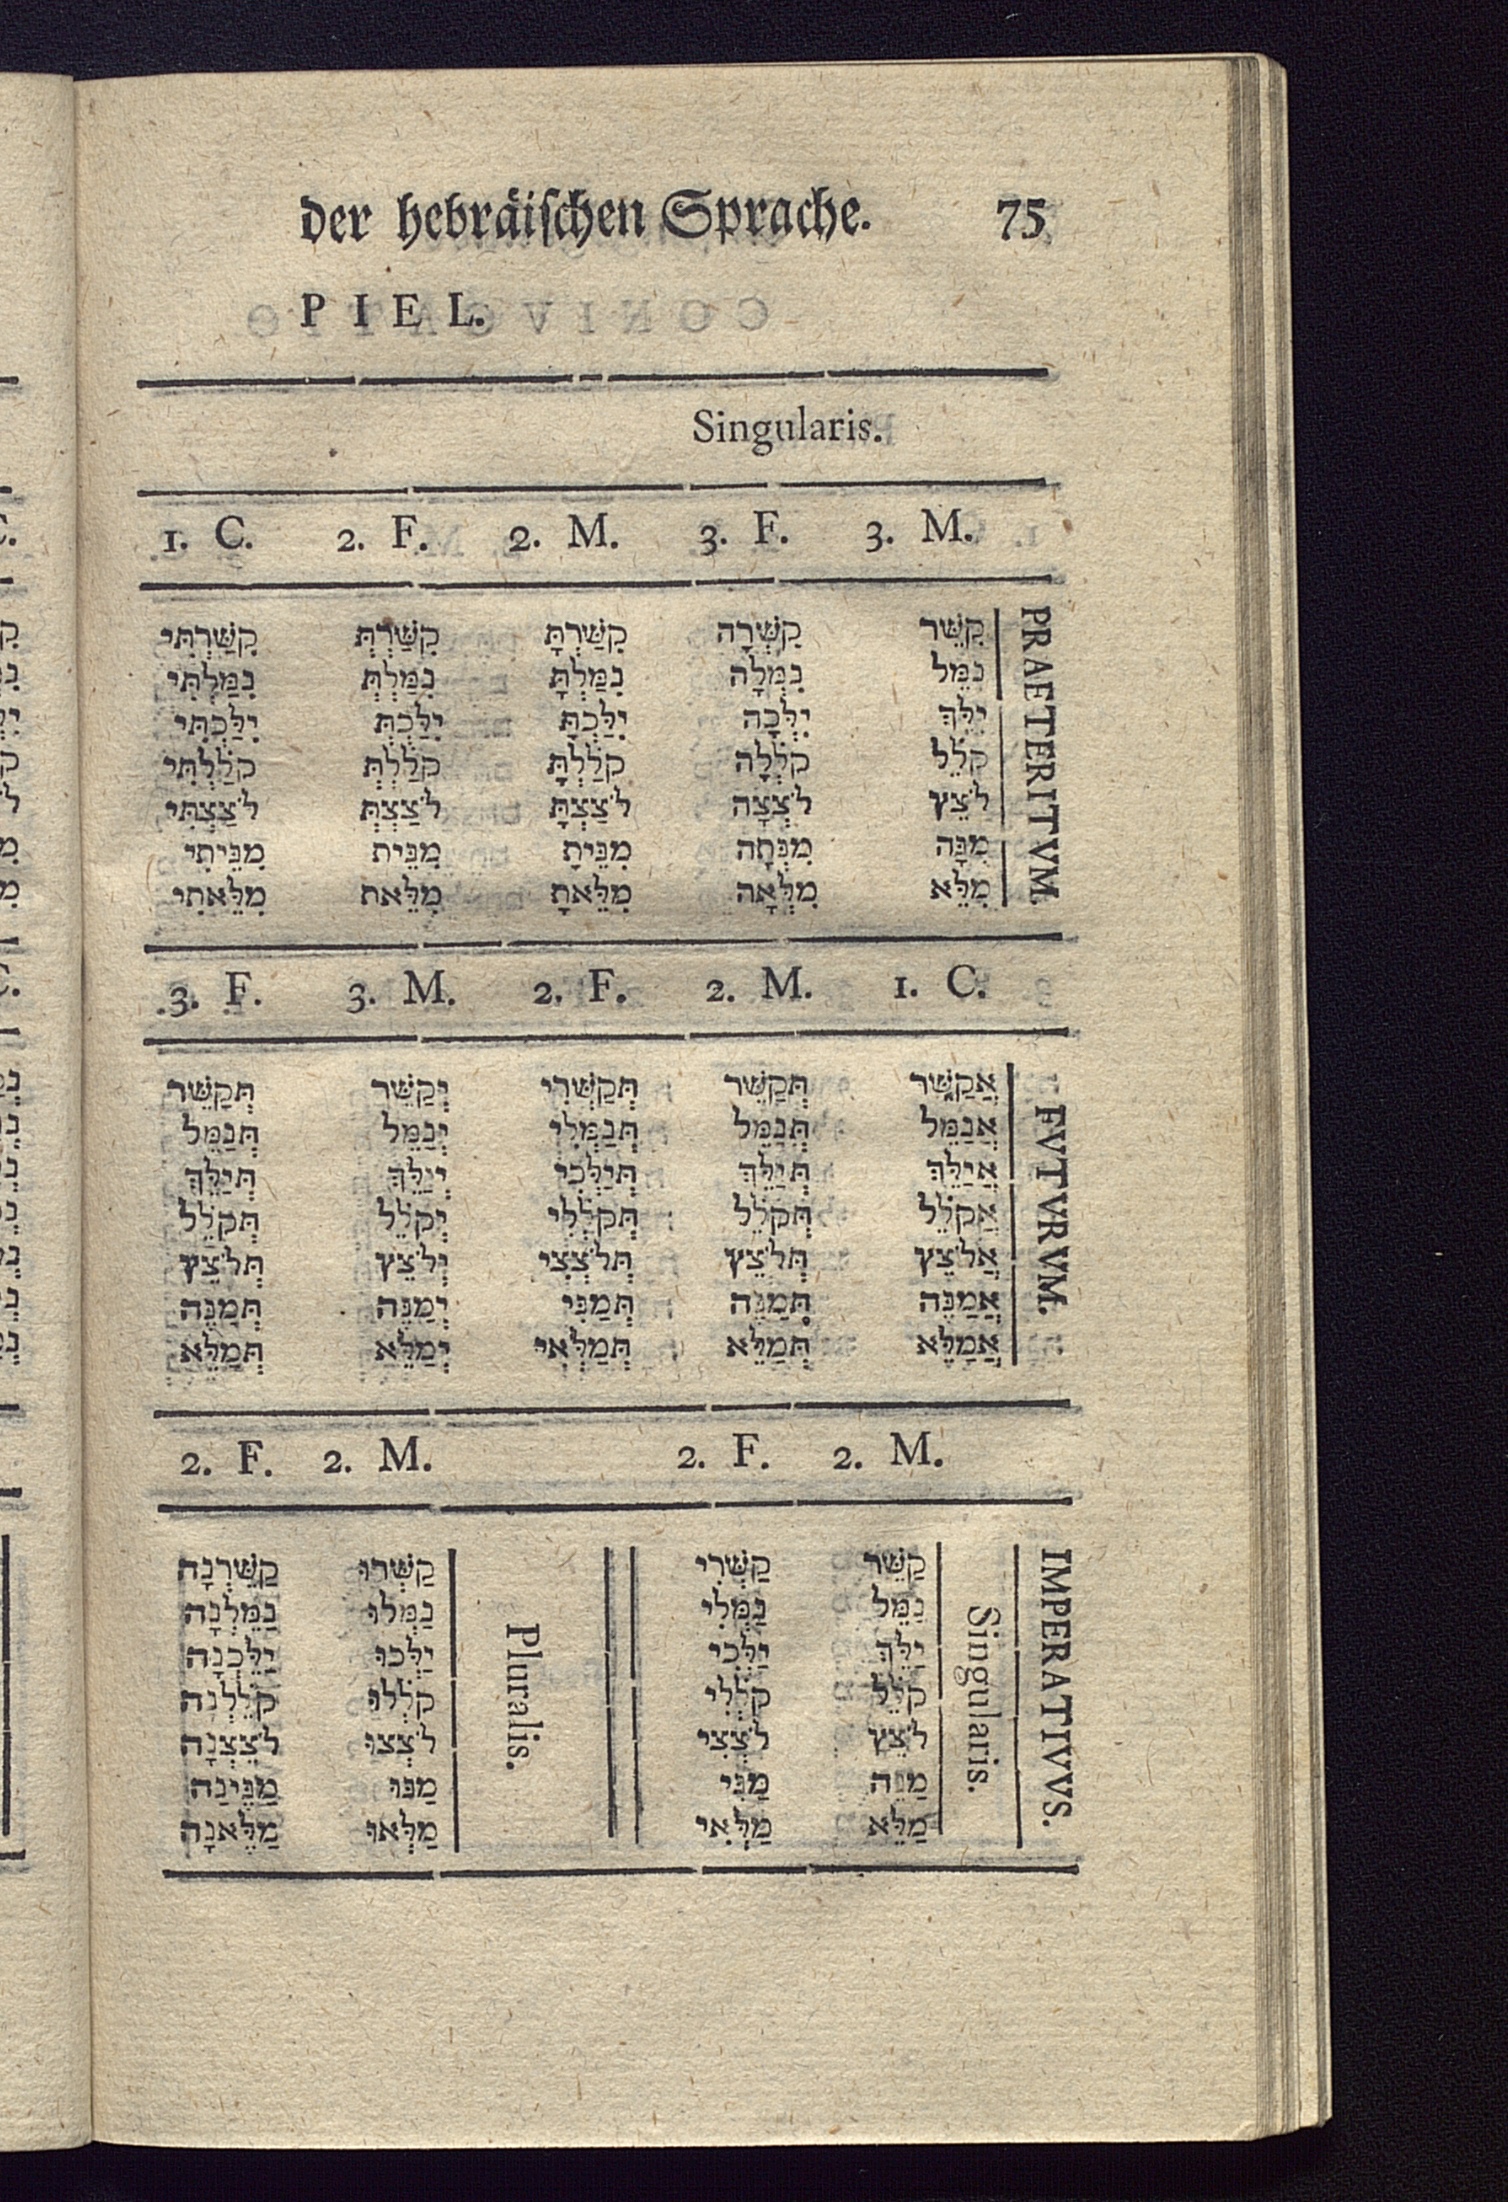 der hebräiſchen Sprache. 75
PIEL.
Singularis.
1. C. 2. F. 2. M. 3. F. 3. M.
PRAETERITVM.
קִשֵּׁר קִשְּׁרָה קִשַּׁרְתָּ קִשַּׁרְתְּ קִשַּׁרְתִּי
נִמֵּל נִמְּלָה נִמַּלְתָּ נִמַּלְתְּ נִמַּלְתִּי
יִלֵּךְ יִלְּכָה יִלַּכְתָּ יִלַּכְתְּ יִלַּכְתִּי
קֹלֵל קֹלְלָה קֹלַלְתָּ קֹלַלְתְּ קֹלַלְתִּי
לֹצֵץ לֹצְצָה לֹצַצְתָּ לֹצַצְתְּ לֹצַצְתִּי
מִנָּה מִנְּתָה מִנֵּיתָ מִנֵּית מִנֵּיתִי
מִלֵּא מִלְּאָה מִלֵּאתָ מִלֵּאת מִלֵּאתִי
3. F. 3. M. 2. F. 2. M. 1. C.
FVTVRVM.
אֲקַשֵּׁר תְּקַשֵּׁר תְּקַשְּׁרִי יְקַשֵּׁר תְּקַשֵּׁר
אֲנַמֵּל תְּנַמֵּל תְּנַמְּלִי יְנַמֵּל תְּנַמֵּל
אֲיַלֵּךְ תְּיַלֵּךְ תְּיַלְּכִי יְיַלֵּךְ תְּיַלֵּךְ
אֲקֹלֵל תְּקֹלֵל תְּקֹלְלִי יְקֹלֵל תְּקֹלֵל
אֲלֹצֵץ תְּלֹצֵץ תְּלֹצְצִי יְלֹצֵץ תְּלֹצֵץ
אֲמַנֶּה תְּמַנֶּה תְּמַנִּי יְמַנֶּה תְּמַנֶּה
אֲמַלֵּא תְּמַלֵּא תְּמַלְּאִי יְמַלֵּא תְּמַלֵּא
2. F. 2. M. 2. F. 2. M.
IMPERATIVVS.
Singularis.
Pluralis.
קַשֵּׁר קַשְּׁרִי קַשְּׁרוּ קַשֵּׁרְנָה
נַמֵּל נַמְּלִי נַמְּלוּ נַמֵּלְנָה
יַלֵּךְ יַלְּכִי יַלְּכוּ יַלֵּכְנָה
קֹלֵל קֹלְלִי קֹלְלוּ קֹלֵלְנָה
לֹצֵץ לֹצְצִי לֹצְצוּ לֹצֵצְנָה
מַנֵּה מַנִּי מַנּוּ מַנֵּינַה
מַלֵּא מַלְּאִי מַלְּאוּ מַלֶּאנָה